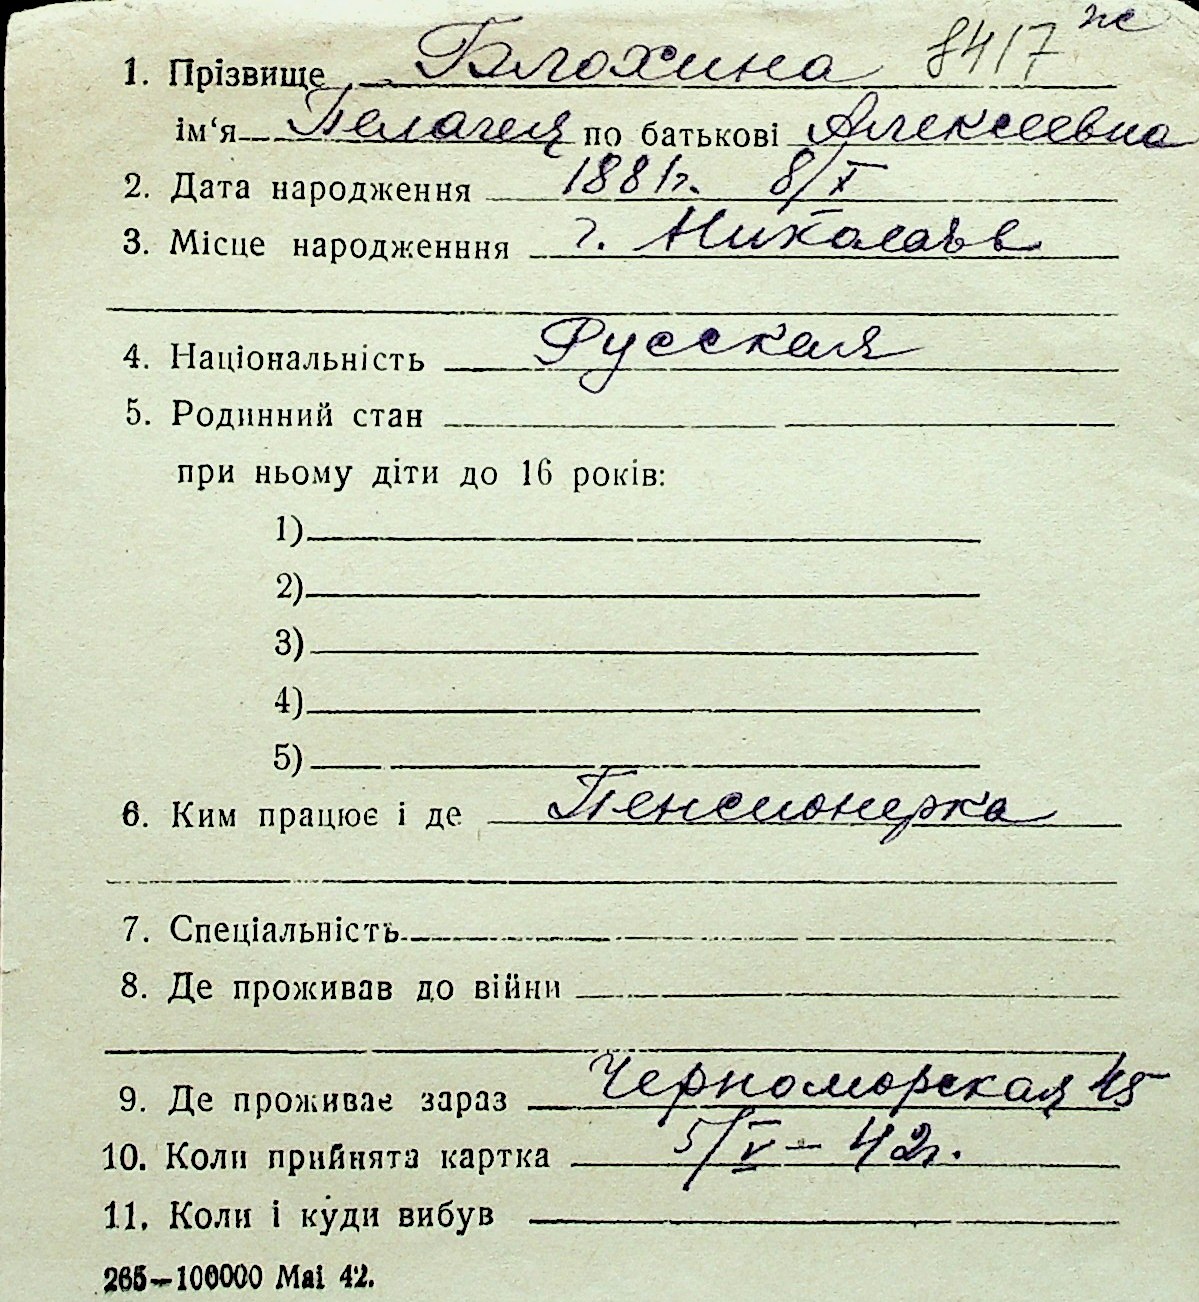 ж
1. Прізвище Блохина 8417
ім‘я Пелагея по батькові Алексеевна
2. Дата народження 1881г. 8/X
3. Місце народженння г. Николаев
4. Національність Русская
5. Родинний стан
при ньому діти до 16 років:
1)
2)
3)
4)
5)
6. Ким працює і де Пенсионерка
7. Спеціальність
8. Де проживав до війни
9. Де проживає зараз Черноморская 45
10. Коли прийнята картка 5/V – 42г.
11. Коли і куди вибув
265—100000 Mai 42.